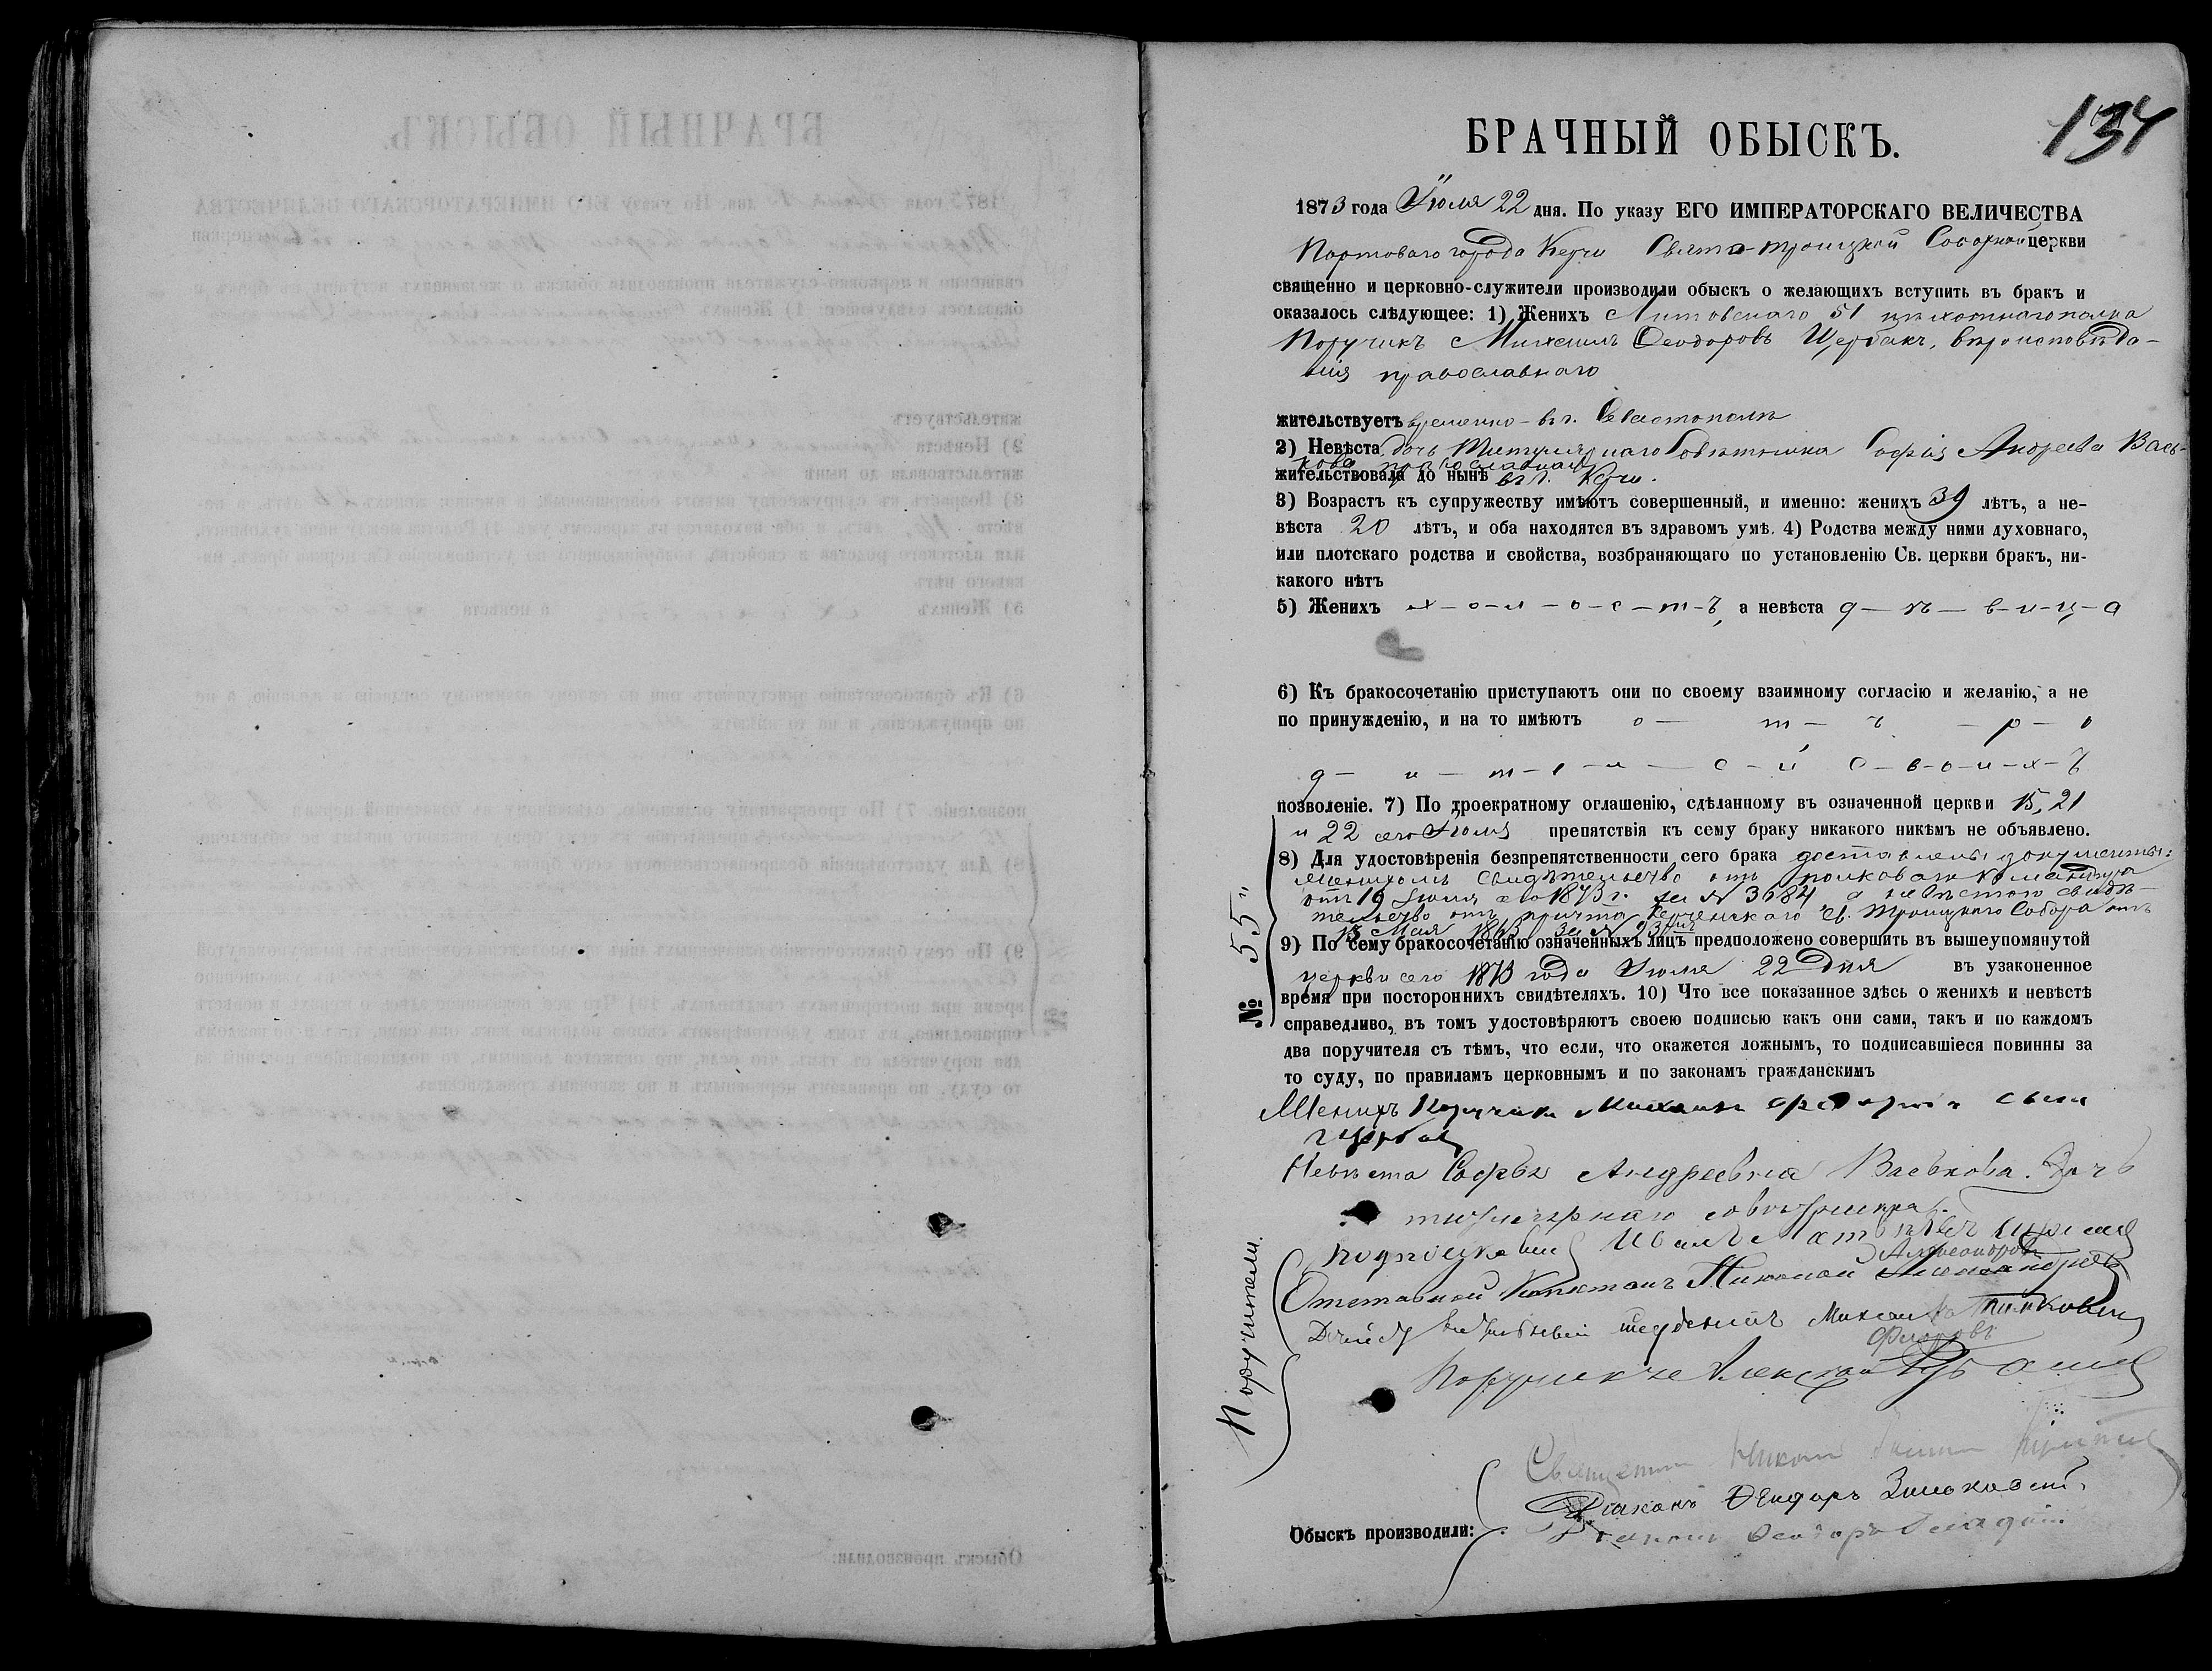 134
БРАЧНЫЙ ОБЫСКЪ.
1873 года Іюля 22 дня. По указу ЕГО ИМПЕРАТОРСКАГО ВЕЛИЧЕСТВА
Портоваго города Керчи Свято-Троицкой Соборной церкви
священно и церковно-служители производили обыскъ о желающихъ вступить въ бракъ и
оказалось слѣдующее: 1) Женихъ Литовскаго 51 пѣхотнаго полка
Поручикъ Михаилъ Ѳеодоровъ Щербакъ, вѣроисповѣда-
нія православнаго
жительствуетъ временно - въ г. Севастополѣ
2) Невѣста дочь Титулярнаго Совѣтника Софія Андреева Вась-
кова православнаго
жительствовала до нынѣ въ г. Керчи.
3) Возрастъ къ супружеству имѣютъ совершенный, и именно: женихъ 39 лѣтъ, а не-
вѣста 20 лѣтъ, и оба находятся въ здравомъ умѣ. 4) Родства между ними духовнаго,
или плотскаго родства и свойства, возбраняющаго по установленію Св. церкви бракъ, ни-
какого нѣтъ
5) Женихъ х-о-л-о-с-т-ъ, а невѣста д-ѣ-в-и-ц-а
6) Къ бракосочетанію приступаютъ они по своему взаимному согласію и желанію, а не
по принужденію, и на то имѣютъ о - т - ъ - р - о
д - и - т - е - л - е - й с-в-о-и-х-ъ
позволеніе. 7) По троекратному оглашенію, сдѣланному въ означенной церкви 15, 21
и 22 сего Іюля препятствія къ сему браку никакого никѣмъ не объявлено.
8) Для удостовѣренія безпрепятственности сего брака доставлены документы:
Женихомъ свидѣтельство отъ полковаго командира
отъ 19 Іюля сего 1873 г. за № 3684 а невѣстою свидѣ-
тельство отъ причта Керченскаго Св. Троицкаго Собора отъ
15 Мая 1863 за № 93
9) По сему бракосочетанію означенныхъ лицъ предположено совершить въ вышеупомянутой
церкви сего 1873 года Іюля 22 дня въ узаконенное
время при постороннихъ свидѣтеляхъ. 10) Что все показанное здѣсь о женихѣ и невѣстѣ
справедливо, въ томъ удостовѣряютъ своею подписью какъ они сами, такъ и по каждомъ
два поручителя съ тѣмъ, что если, что окажется ложнымъ, то подписавшіеся повинны за
то суду, по правиламъ церковнымъ и по законамъ гражданскимъ
№ 55"
Женихъ Поручикъ Михаилъ сынъ
Щербак
Невѣста Софья Андреевна Васькова. Дочь
титулярнаго совѣтника.
Поручители.
Подполковник Иванъ
Отставной Капитанъ Николай
Михаилъ
Поручикъ Алексей
Обыскъ производили:
Священник
Діаконъ Ѳеодоръ